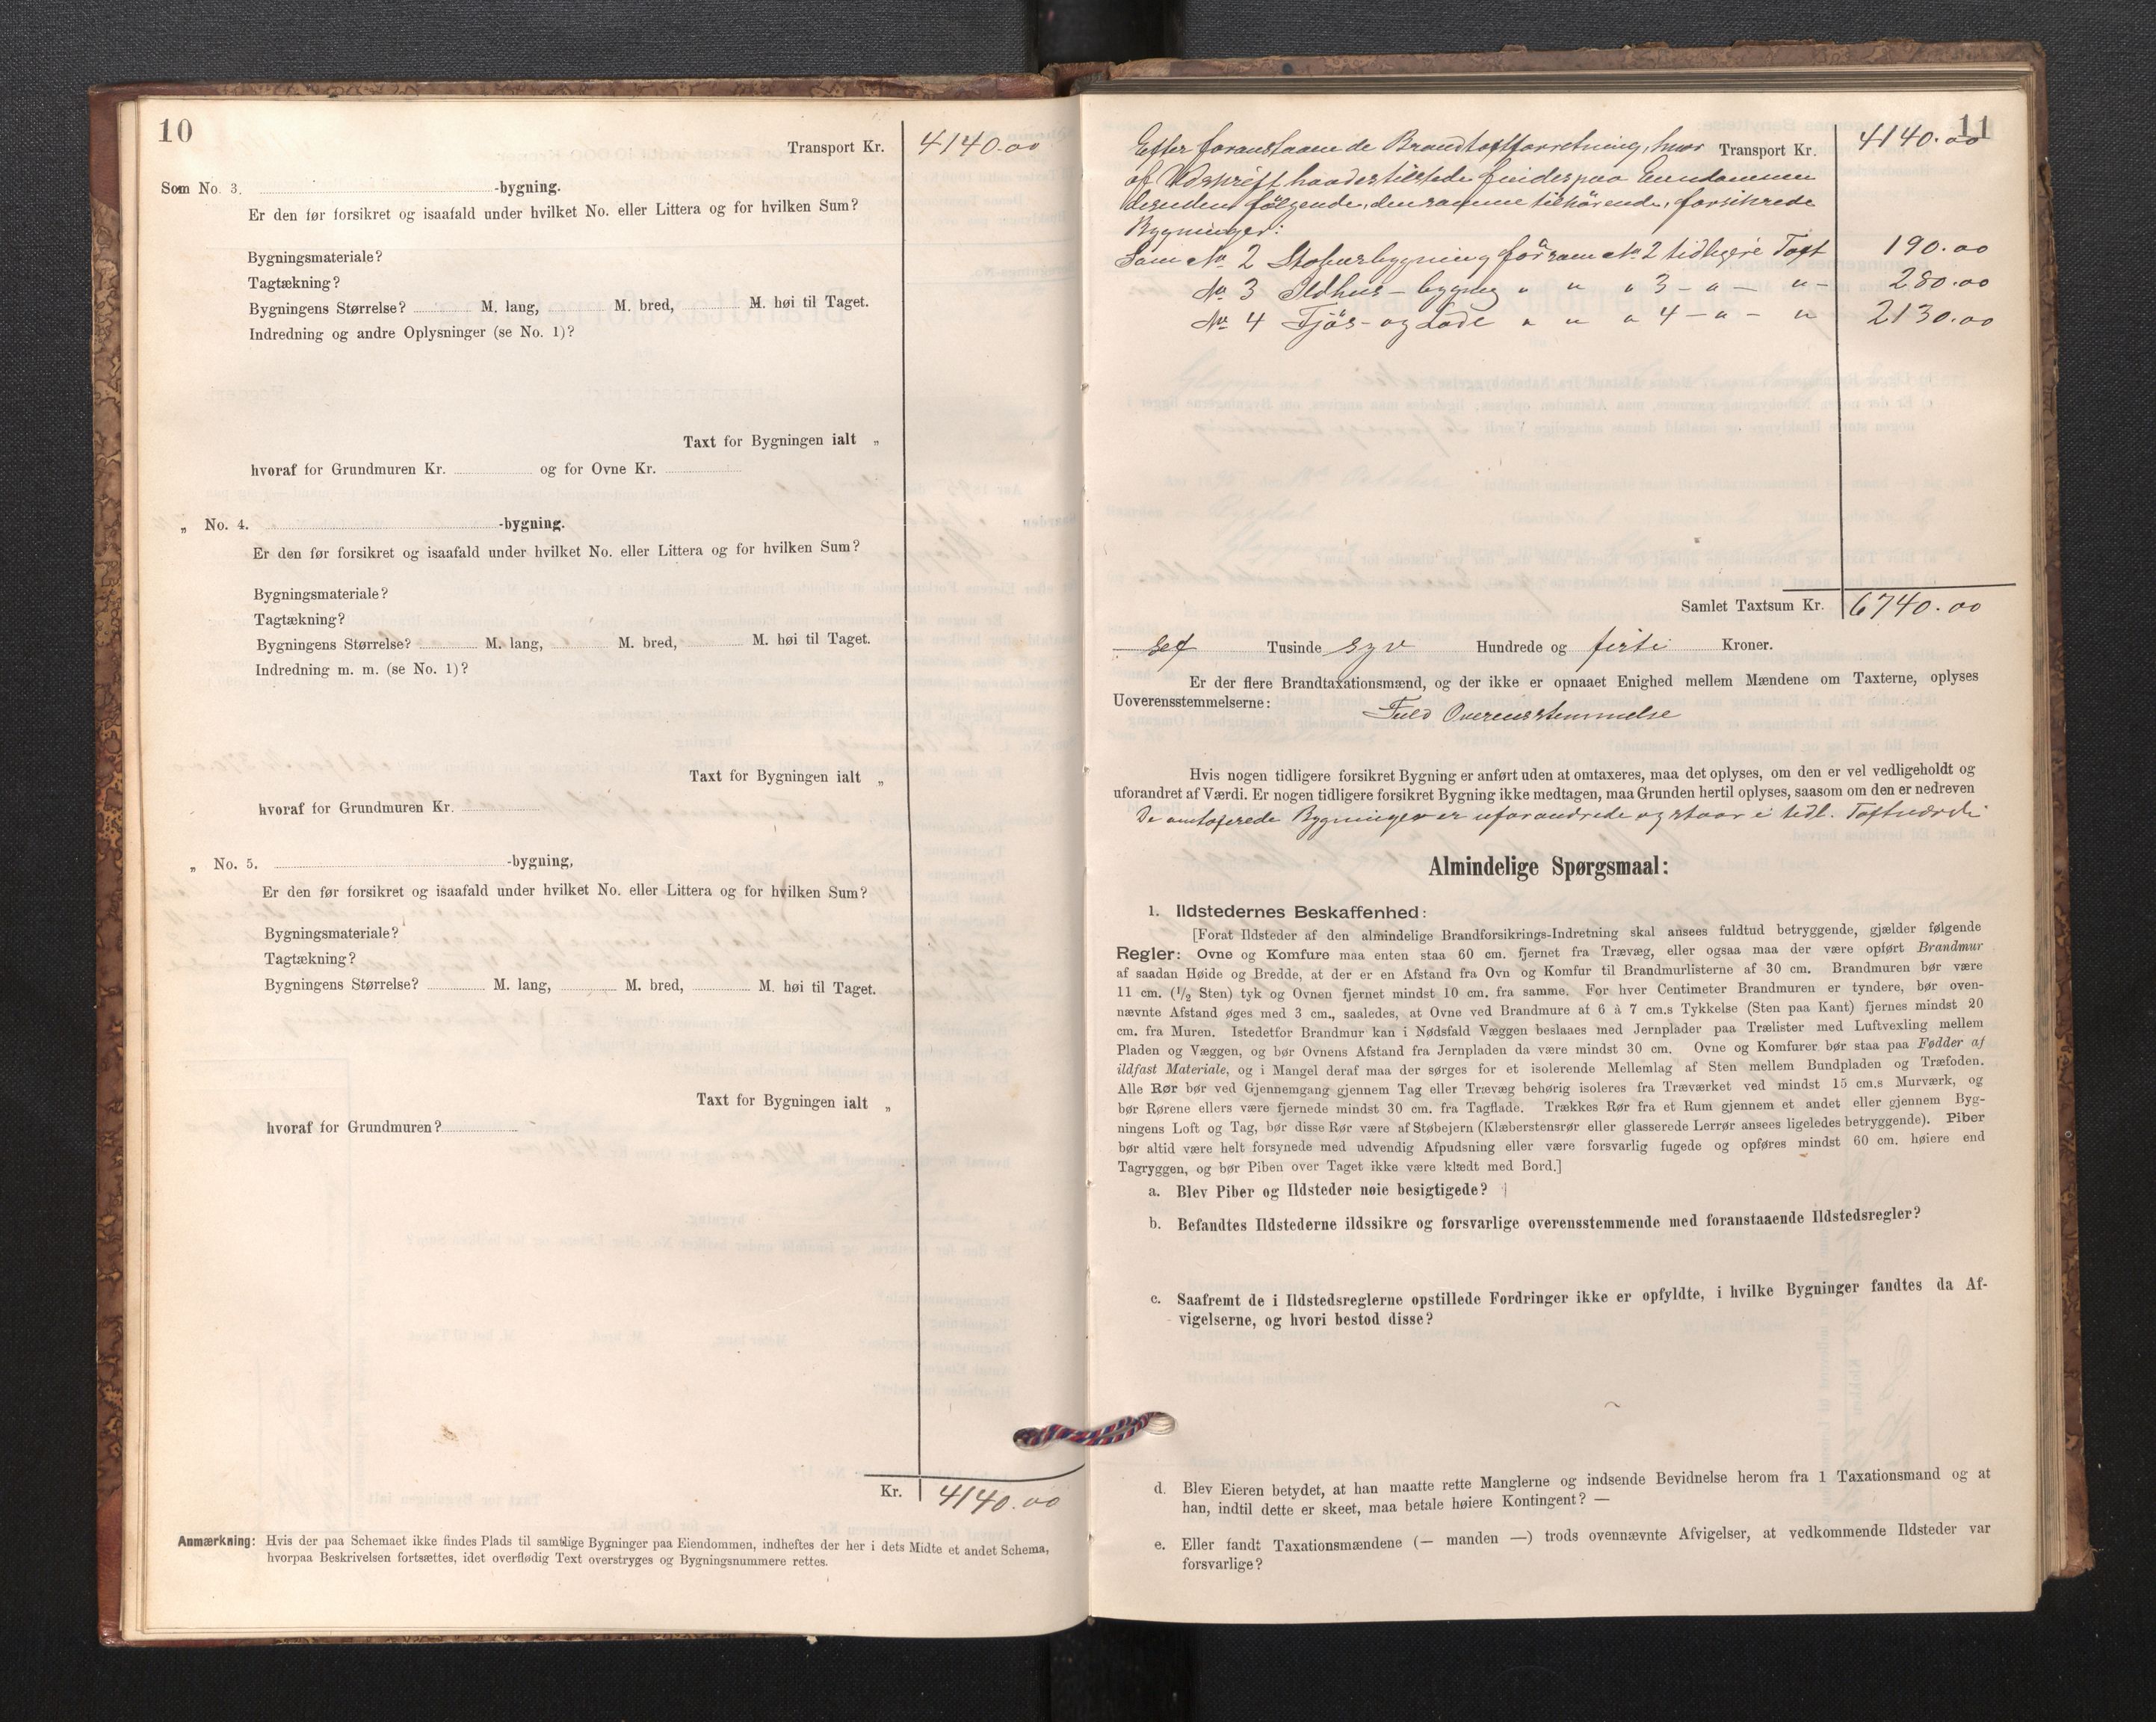 10
Transport Kr. 4140.00
Som No. 3. -bygning.
Er den før forsikret og isaafald under hvilket No. eller Littera og for hvilken Sum?
Bygningsmateriale?
Tagtækning?
Bygningens Størrelse? M. lang, M. bred, M. høi til Taget.
Indredning og andre Oplysninger (se No. 1)?
Taxt for Bygningen ialt „
hvoraf for Grundmuren Kr. og for Ovne Kr.
„ No. 4. -bygning.
Er den før forsikret og isaafald under hvilket No. eller Littera og for hvilken Sum?
Bygningsmateriale?
Tagtækning?
Bygningens Størrelse? M. lang, M. bred, M. høi til Taget.
Indredning m. m. (se No. 1)?
Taxt for Bygningen ialt „
hvoraf for Grundmuren Kr.
„ No. 5. -bygning,
Er den før forsikret og isaafald under hvilket No. eller Littera og for hvilken Sum?
Bygningsmateriale?
Tagtækning?
Bygningens Størrelse? M. lang, M. bred, M. høi til Taget.
Taxt for Bygningen ialt „
hvoraf for Grundmuren?
Kr. 4140.00
Anmærkning: Hvis der paa Schemaet ikke findes Plads til samtlige Bygninger paa Eiendommen, indheftes der her i dets Midte et andet Schema,
hvorpaa Beskrivelsen fortsættes, idet overflødig Text overstryges og Bygningsnummere rettes.
11
Efter foranstaaende Brandtaxtforretning, hvor Transport Kr. 4140.00
af Udskrift havdes tilstede findes paa Eiendommen
desuden følgende, densamme tilhørende, forsikrede
Bygninger:
Som No 2 Stabursbygning før som No 2 tidligere Taxt 190.00
No 3 Ildhus-bygnig " " " 3 - " - " - 280.00
No 4 Fjøs- og Lade " " " 4 - " - " 2130.00
Samlet Taxtsum Kr. 6740.00
sex Tusinde syv Hundrede og firti Kroner.
Er der flere Brandtaxationsmænd, og der ikke er opnaaet Enighed mellem Mændene om Taxterne, oplyses
Uoverensstemmelserne: Fuld Overensstemmelse
Hvis nogen tidligere forsikret Bygning er anført uden at omtaxeres, maa det oplyses, om den er vel vedligeholdt og
uforandret af Værdi. Er nogen tidligere forsikret Bygning ikke medtagen, maa Grunden hertil oplyses, saasom om den er nedreven
De omtaxerede Bygninger er uforandrede og staar i tidl. Taxtværdi
Almindelige Spørgsmaal:
1. Ildstedernes Beskaffenhed:
[Forat Ildsteder af den almindelige Brandforsikrings-Indretning skal ansees fuldtud betryggende, gjælder følgende
Regler: Ovne og Komfure maa enten staa 60 cm. fjernet fra Trævæg, eller ogsaa maa der være opført Brandmur
af saadan Høide og Bredde, at der er en Afstand fra Ovn og Komfur til Brandmurlisterne af 30 cm. Brandmuren bør være
11 cm. (1/2 Sten) tyk og Ovnen fjernet mindst 10 cm. fra samme. For hver Centimeter Brandmuren er tyndere, bør oven-
nævnte Afstand øges med 3 cm., saaledes, at Ovne ved Brandmure af 6 à 7 cm.s Tykkelse (Sten paa Kant) fjernes mindst 20
cm. fra Muren. Istedetfor Brandmur kan i Nødsfald Væggen beslaaes med Jernplader paa Trælister med Luftvexling mellem
Pladen og Væggen, og bør Ovnens Afstand fra Jernpladen da være mindst 30 cm. Ovne og Komfurer bør staa paa Fødder af
ildfast Materiale, og i Mangel deraf maa der sørges for et isolerende Mellemlag af Sten mellem Bundpladen og Træfoden.
Alle Rør bør ved Gjennemgang gjennem Tag eller Trævæg behørig isoleres fra Træværket ved mindst 15 cm.s Murværk, og
bør Rørene ellers være fjernede mindst 30 cm. fra Tagflade. Trækkes Rør fra et Rum gjennem et andet eller gjennem Byg-
ningens Loft og Tag, bør disse Rør være af Støbejern (Klæberstensrør eller glasserede Lerrør ansees ligeledes betryggende). Piber
bør altid være helt forsynede med udvendig Afpudsning eller være forsvarlig fugede og opføres mindst 60 cm. høiere end
Tagryggen, og bør Piben over Taget ikke være klædt med Bord.]
a. Blev Piber og Ildsteder nøie besigtigede?
b. Befandtes Ildstederne ildssikre og forsvarlige overensstemmende med foranstaaende Ildstedsregler?
c. Saafremt de i Ildstedsreglerne opstillede Fordringer ikke er opfyldte, i hvilke Bygninger fandtes da Af-
vigelserne, og hvori bestod disse?
d. Blev Eieren betydet, at han maatte rette Manglerne og indsende Bevidnelse herom fra 1 Taxationsmand og at
han, indtil dette er skeet, maa betale høiere Kontingent? —
e. Eller fandt Taxationsmændene (— manden —) trods ovennævnte Afvigelser, at vedkommende Ildsteder var
forsvarlige?